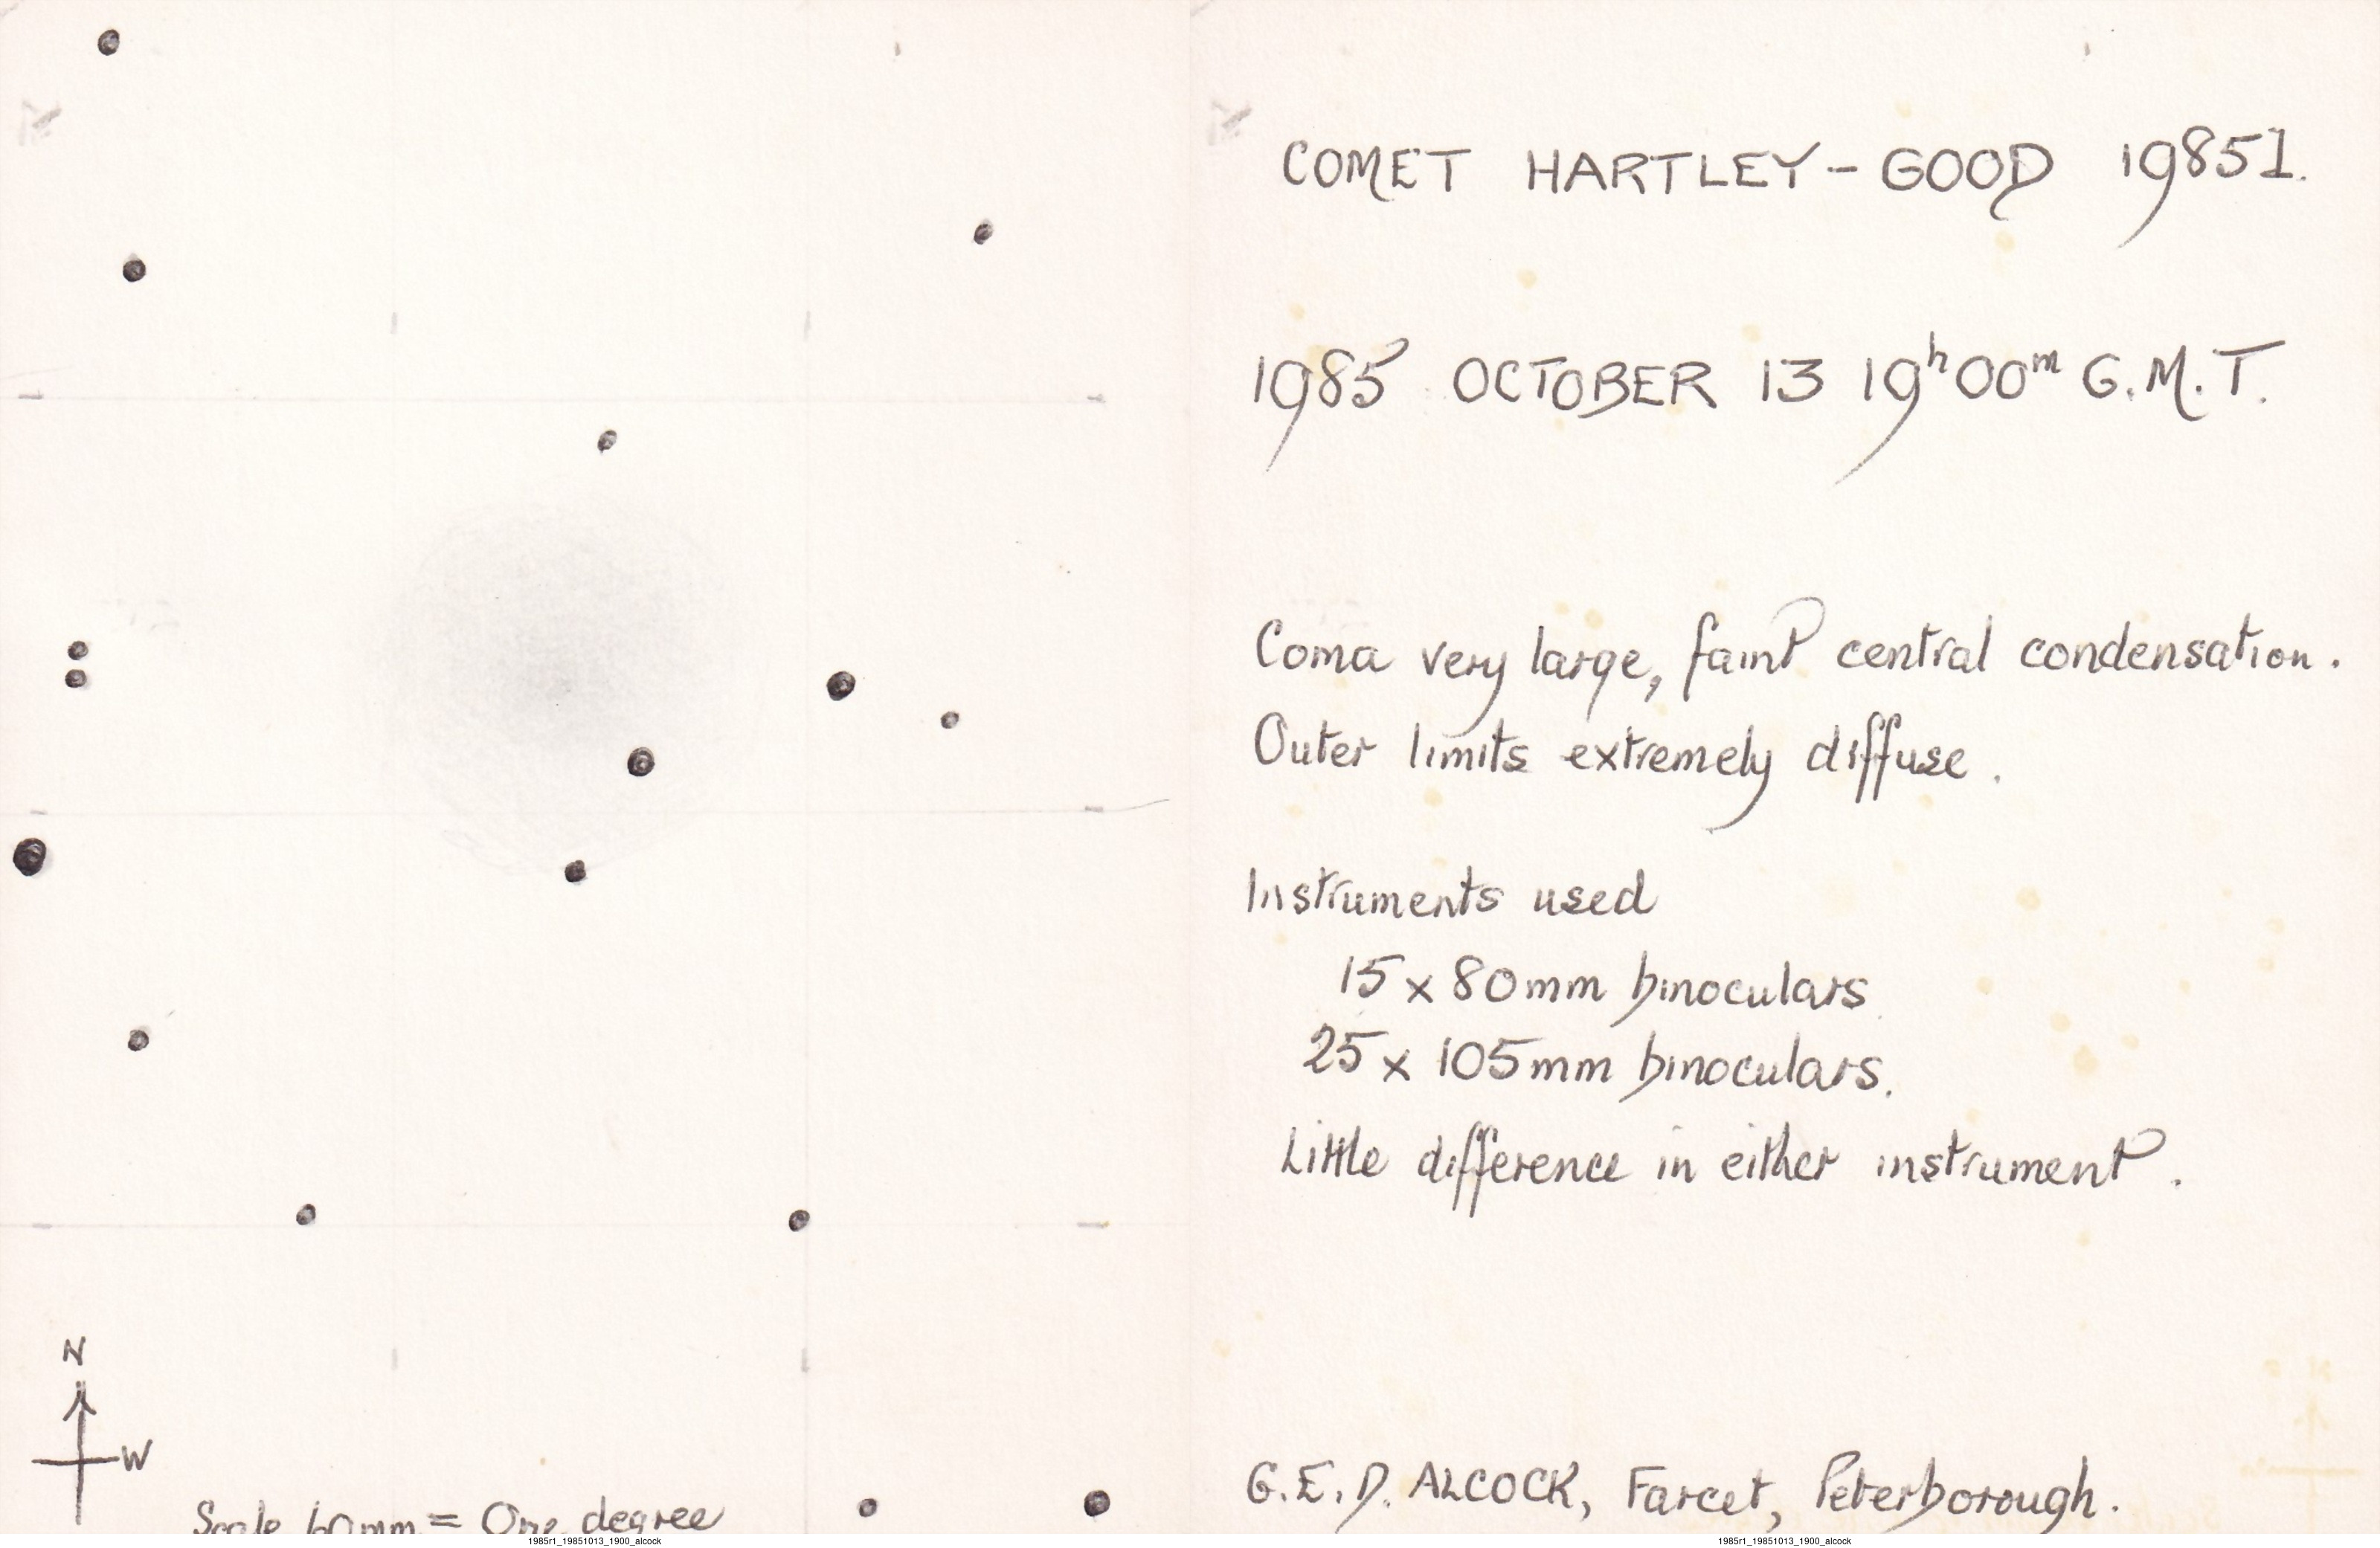 COMET HARTLEY-GOOD 1985l.
1985 OCTOBER 13 19h00m G.M.T.
Coma very large, faint central condensation.
Outer limits extremely diffuse.
Instruments used
15 x 80mm binoculars
25 x 105mm binoculars.
Little difference in either instrument.
G.E.D. ALCOCK, Farcet, Peterborough.
N
W
Scale 60mm = One degree
1985r1_19851013_1900_alcock
1985r1_19851013_1900_alcock